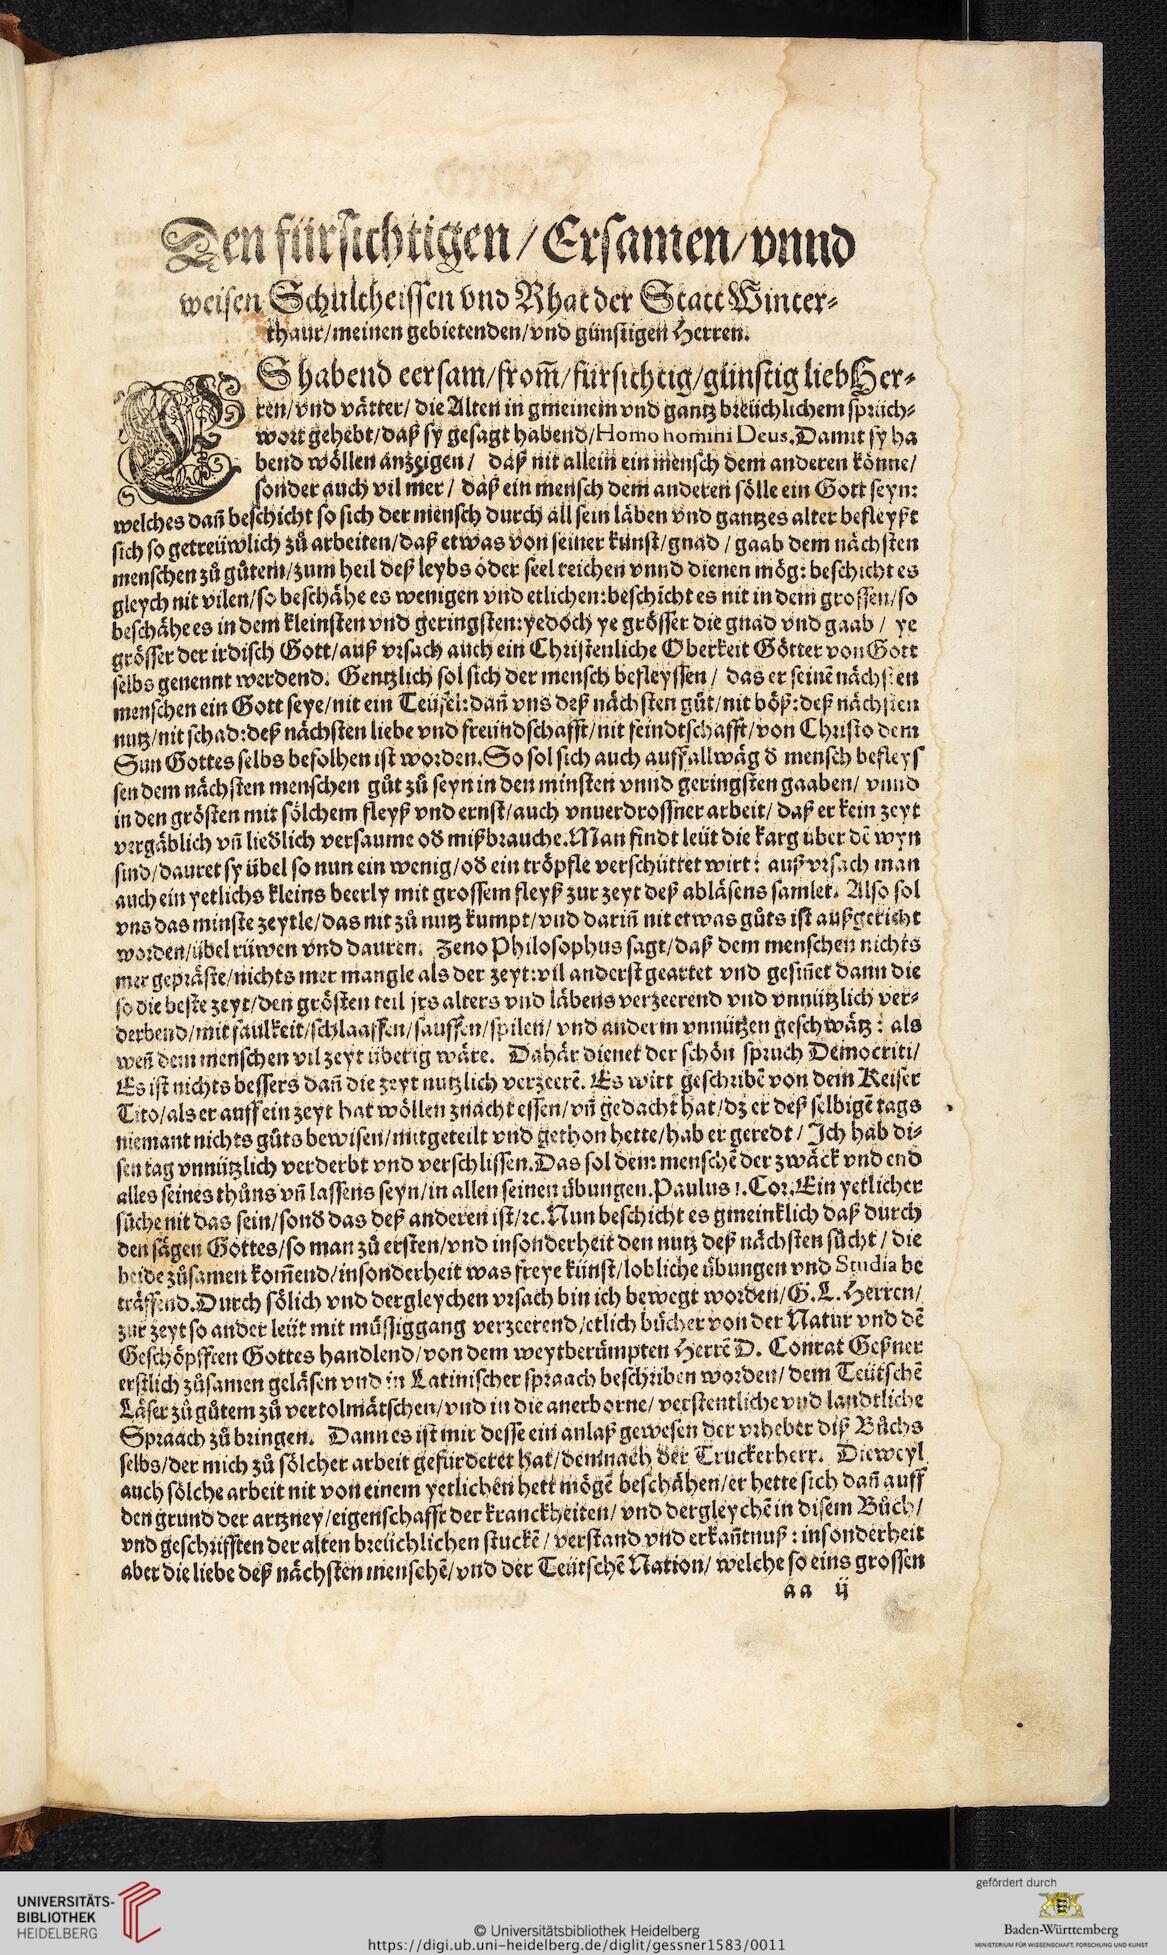 Den fürsichtigen / Ersamen / vnnd
weisen Schultheissen vnd Rhat der Statt Winter⸗
thaur / meinen gebietenden / vnd günstigen Herren.
ES habend eersam / from̃ / fürsichtig / günstig lieb Her⸗
ren / vnd vätter / die Alten in gmeinem vnd gantz breüchlichem sprüch⸗
wort gehebt / daß sy gesagt habend / Homo homini Deus. Damit sy ha
bend wöllen anzeigen / daß nit allein ein mensch dem anderen könne /
sonder auch vil mer / daß ein mensch dem anderen sölle ein Gott seyn:
welches dañ beschicht so sich der mensch durch all sein läben vnd gantzes alter befleyßt
sich so getreüwlich zů arbeiten / daß etwas von seiner kunst / gnad / gaab dem nächsten
menschen zů gůtem / zum heil deß leybs oder seel reichen vnnd dienen mög: beschicht es
gleych nit vilen / so beschähe es wenigen vnd etlichen: beschicht es nit in dem grossen / so
beschähe es in dem kleinsten vnd geringsten: yedoch ye grösser die gnad vnd gaab / ye
grösser der irdisch Gott / auß vrsach auch ein Christenliche Oberkeit Götter von Gott
selbs genennt werdend. Gentzlich sol sich der mensch befleyssen / das er seinẽ nächsten
menschen ein Gott seye / nit ein Teüfel: dañ vns deß nächsten gůt / nit böß: deß nächsten
nutz / nit schad: deß nächsten liebe vnd freündschafft / nit feindtschafft / von Christo dem
Sun Gottes selbs befolhen ist worden. So sol sich auch auff allwäg d̃ mensch befleys
sen dem nächsten menschen gůt zů seyn in den minsten vnnd geringsten gaaben / vnnd
in den grösten mit sölchem fleyß vnd ernst / auch vnuerdrossner arbeit / daß er kein zeyt
vergäblich vñ liedlich versaume od̃ mißbrauche. Man findt leüt die karg über dẽ wyn
sind / dauret sy übel so nun ein wenig / od̃ ein tröpfle verschüttet wirt: auß vrsach man
auch ein yetlichs kleins beerly mit grossem fleyß zur zeyt deß abläsens samlet. Also sol
vns das minste zeytle / das nit zů nutz kumpt / vnd dariñ nit etwas gůts ist außgericht
worden / übel rüwen vnd dauren. Zeno Philosophus sagt / daß dem menschen nichts
mer gepräste / nichts mer mangle als der zeyt: vil anderst geartet vnd gesiñet dann die
so die beste zeyt / den grösten teil jrs alters vnd läbens verzeerend vnd vnnützlich ver⸗
derbend / mit faulkeit / schlaaffen / sauffen / spilen / vnd anderm vnnützen geschwätz: als
weñ dem menschen vil zeyt überig wäre. Dahär dienet der schön spruch Democriti /
Es ist nichts bessers dañ die zeyt nutzlich verzeerẽ. Es wirt geschribẽ von dem Keiser
Tito / als er auff ein zeyt hat wöllen znacht essen / vñ gedacht hat / dz er deß selbigẽ tags
niemant nichts gůts bewisen / mitgeteilt vnd gethon hette / hab er geredt / Ich hab di⸗
sen tag vnnützlich verderbt vnd verschlissen. Das sol dem menschẽ der zwäck vnd end
alles seines thůns vñ lassens seyn / in allen seinen übungen. Paulus 1. Cor. Ein yetlicher
sůche nit das sein / sond̃ das deß anderen ist / ꝛc. Nun beschicht es gmeinklich daß durch
den sägen Gottes / so man zů ersten / vnd insonderheit den nutz deß nächsten sůcht / die
beide zůsamen kom̃end / insonderheit was freye künst / lobliche übungen vnd Studia be
träffend. Durch sölich vnd dergleychen vrsach bin ich bewegt worden / G. L. Herren /
zur zeyt so ander leüt mit müssiggang verzeerend / etlich bücher von der Natur vnd dẽ
Geschöpfften Gottes handlend / von dem weytberümpten Herrẽ D. Conrat Geßner
erstlich zůsamen geläsen vnd in Latinischer spraach beschriben worden / dem Teütschẽ
Läser zů gůtem zů vertolmätschen / vnd in die anerborne / verstentliche vnd landtliche
Spraach zů bringen. Dann es ist mir desse ein anlaß gewesen der vrheber diß Bůchs
selbs / der mich zů sölcher arbeit gefürderet hat / demnach der Truckerherr. Dieweyl
auch sölche arbeit nit von einem yetlichen hett mögẽ beschähen / er hette sich dañ auff
den grund der artzney / eigenschafft der kranckheiten / vnd dergleychẽ in disem Bůch /
vnd geschrifften der alten breüchlichen stuckẽ / verstand vnd erkañtnuß: insonderheit
aber die liebe deß nächsten menschẽ / vnd der Teütschẽ Nation / welche so eins grossen
aa ij
UNIVERSITÄTS-
BIBLIOTHEK
HEIDELBERG
© Universitätsbibliothek Heidelberg
https://digi.ub.uni-heidelberg.de/diglit/gessner1583/0011
gefördert durch
Baden-Württemberg
MINISTERIUM FÜR WISSENSCHAFT, FORSCHUNG UND KUNST